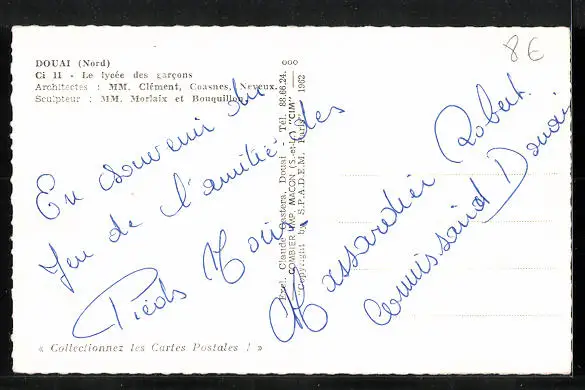 8€
DOUAI (Nord)
Ci 11 - Le lycée des garçons
Architectes : MM. Clément, Coasnes, Neveux.
Sculpteur : MM. Morlaix et Bouquillon
En souvenir du
Jeu de l'amitié des
Pieds Noirs
Massardier Robert
Commissariat Douai
Excl. Claude Castera, Douai - Tél. 88.66.24.
COMBIER IMP. MACON (S.-et-L.) "CIM"
"Copyright by S.P.A.D.E.M. Paris" 1962
« Collectionnez les Cartes Postales ! »